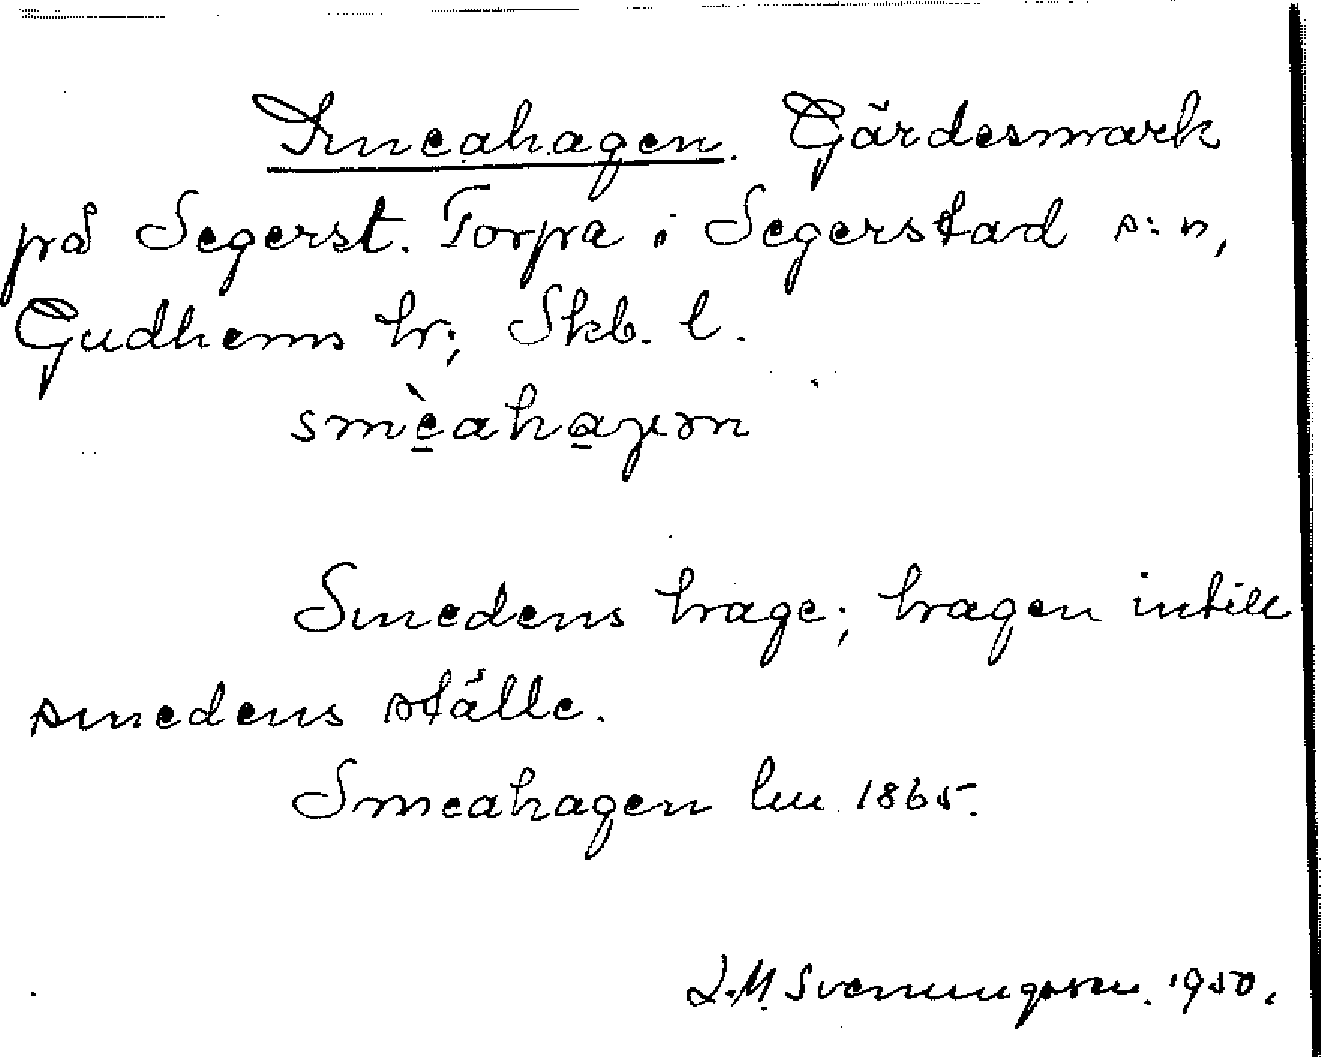 Smeahagen. Gärdesmark
på Segerst. Torpa i Segerstad s:n,
Gudhems hr; Skb. l.
smèahaγən
Smedens hage; hagen intill
smedens ställe.
Smeahagen lm 1865.
S.M. Svenungsson. 1950.